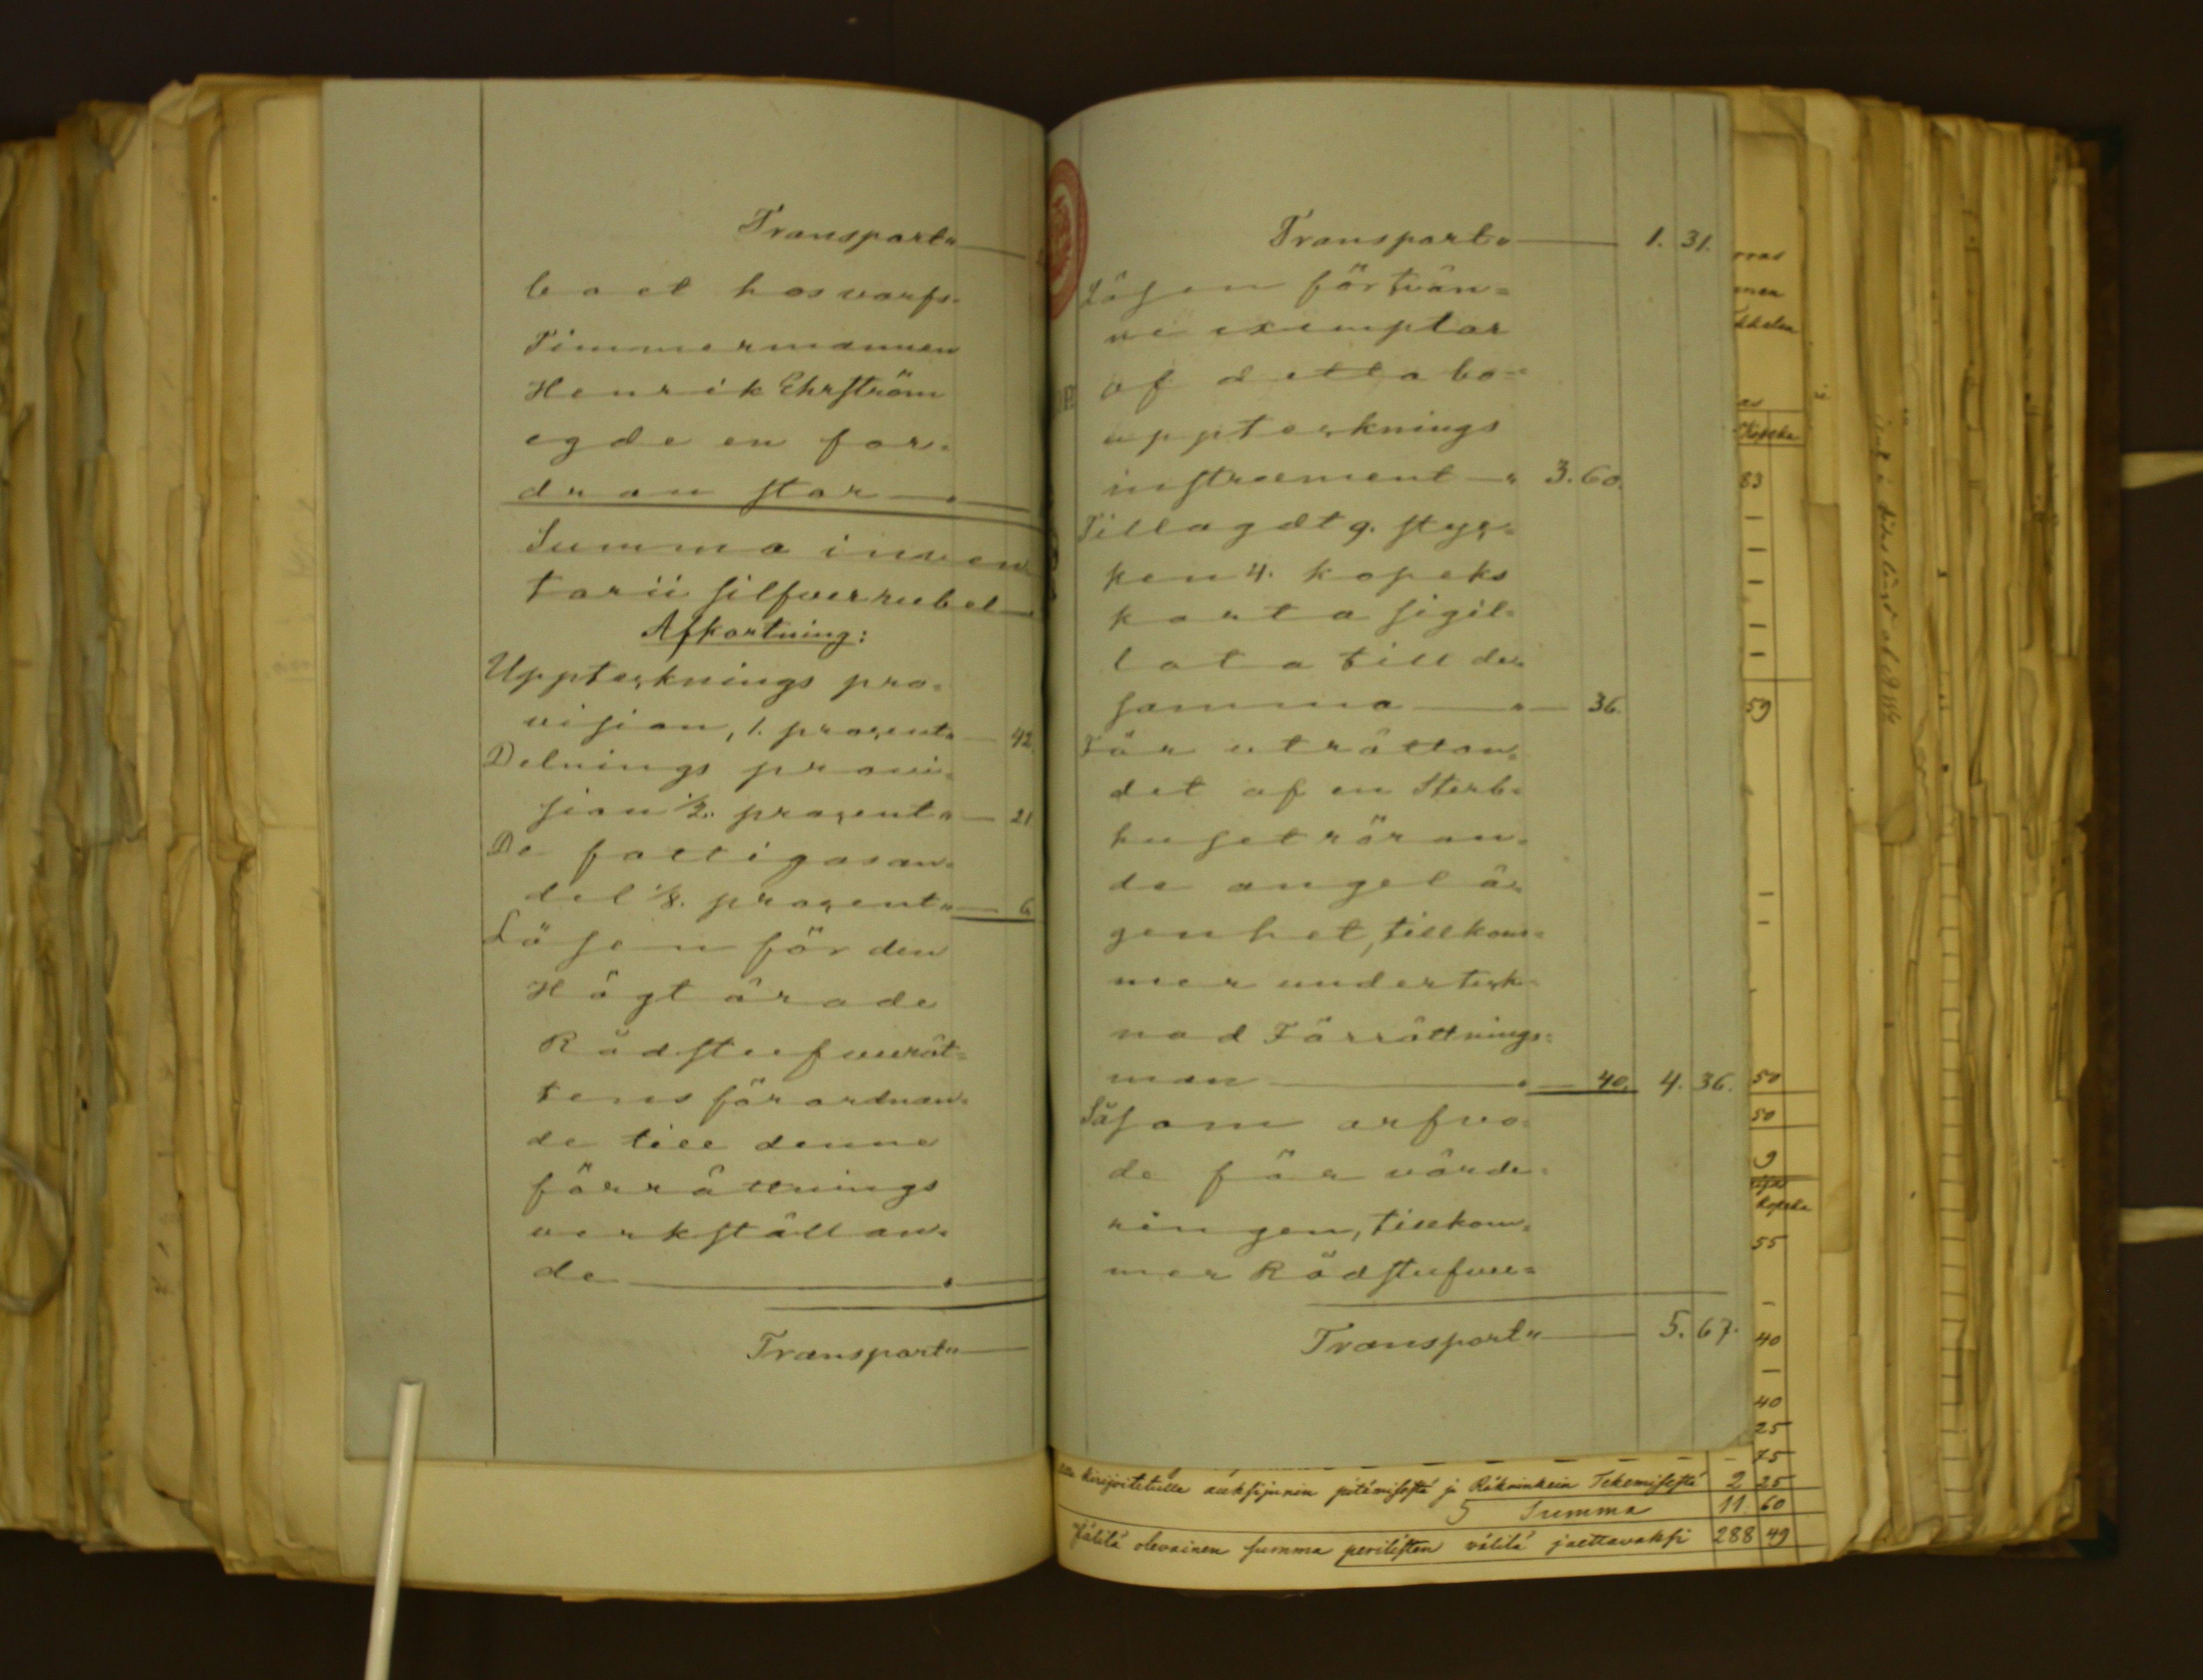 Transport
boet hos varfs-
Timmermannen
Henrik Ehrström
egde en for-
dran stor
Summa inven
tarii silfverrubel
Afkortning:
Upptecknings pro-
vision, 1. procent 42.
Delnings provi-
sion ½. procent 21
De fattigas an-
del ⅛. procent 6
Lösen för den
Högtärade
Rådstufvurät-
tens förordnan-
de till denne
förrättnings
verkställan-
de
Transport
Transport 1. 31.
Lösen för tvän-
ne exemplar
af detta bo-
upptecknings
instrument 3. 60.
Tillagdt 9. styc-
ken 4. kopeks
karta sigil-
lata till den
samma 36.
För uträttan-
det af en Sterb-
huset röran-
de angelä-
genhet, tillkom-
mer underteck-
nad Förrättnings-
man 40. 4. 36.
Såsom arfvo-
de för värde-
ringen, tillkom-
mer Rådstufvu-
Transport 5. 67.
kopeka
83
59
50
50
9
kopeka
55
40
40
25
75
kirjoitetulle auksjunin pitämisestä ja Räkninkein Tekemisestä 2 25
Summa 11. 60
Jälilä olevainen summa perilisten välilä jaettavaksi 288 49